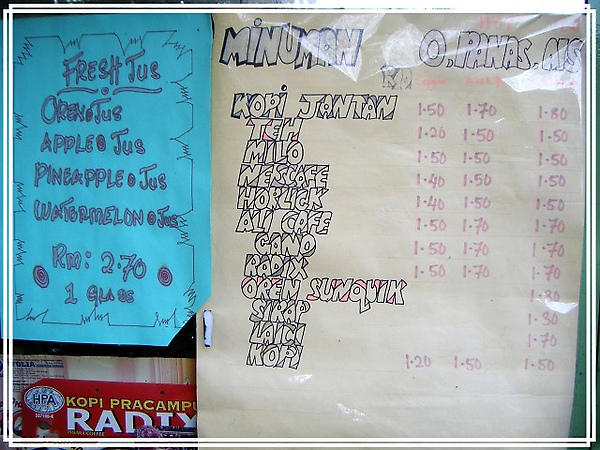 FRESH JUS
OREN JUS
APPLE JUS
PINEAPPLE JUS
WATERMELON JUS
RM: 2.70
1 GLASS
MINUMAN O. PANAS. AIS
KOPI JANTAN 1.50 1.70 1.80
TEH 1.20 1.50 1.50
MILO 1.50 1.50 1.50
NESCAFE 1.40 1.50 1.50
HORLICK 1.40 1.50 1.50
ALI CAFE 1.50 1.70 1.70
GANO 1.50 1.70 1.70
RADIX 1.50 1.70 1.70
OREN SUNQUIK 1.30
SIRAP 1.30
LAICI 1.70
KOPI 1.20 1.50 1.50
HPA
KOPI PRACAMPU
RADIX